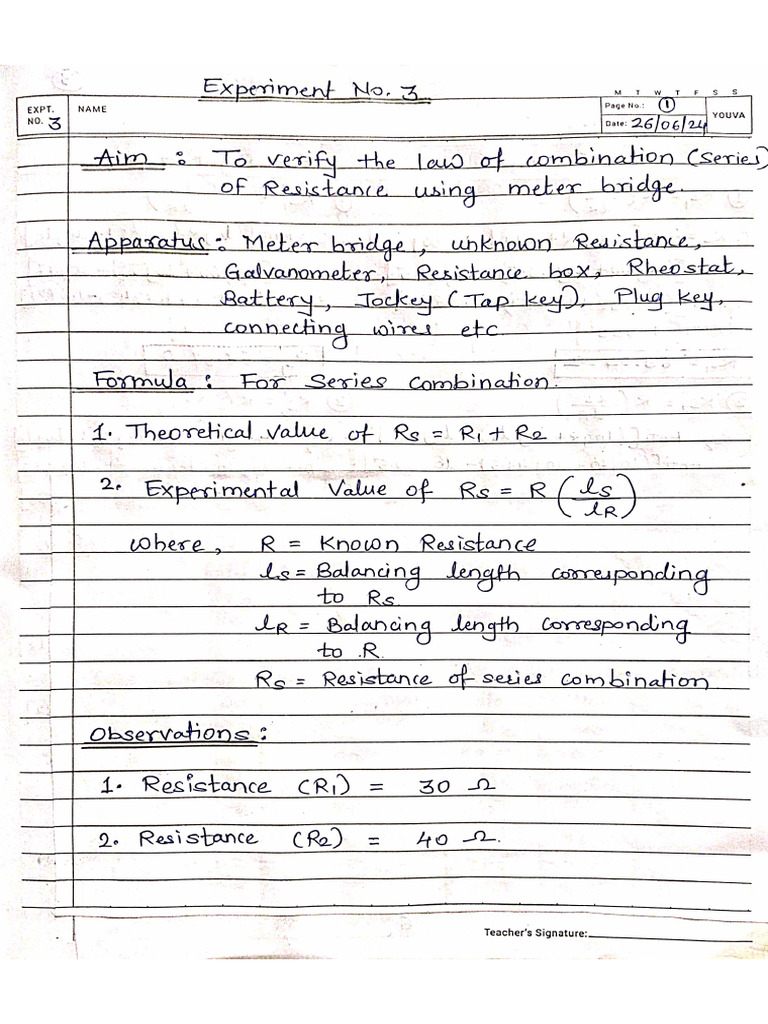 Experiment No. 3
M T W T F S S
EXPT. NO. 3 NAME
Page No.: 1
Date: 26/06/24
YOUVA
Aim : To verify the law of combination (series)
of Resistance using meter bridge.
Apparatus : Meter bridge, unknown Resistance,
Galvanometer, Resistance box, Rheostat,
Battery, Jockey (Tap key), Plug key,
connecting wires etc
Formula : For Series Combination.
1. Theoretical value of Rs = R1 + R2
2. Experimental Value of Rs = R (ls/lR)
where, R = Known Resistance
ls = Balancing length corresponding
to Rs
lR = Balancing length corresponding
to R.
Rs = Resistance of series combination
Observations :
1. Resistance (R1) = 30 Ω
2. Resistance (R2) = 40 Ω.
Teacher's Signature: